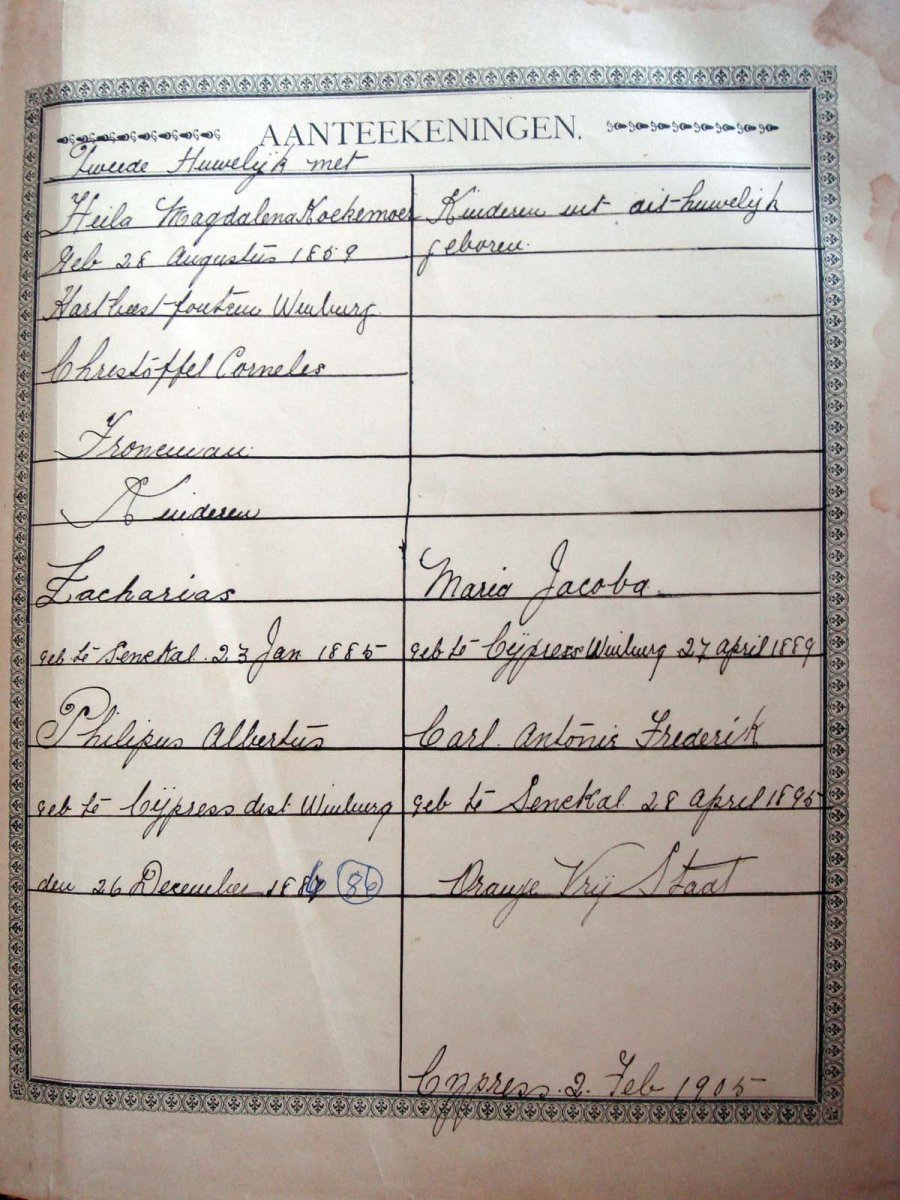 AANTEEKENINGEN.
Tweede Huwelijk met
Heila Magdalena Koekemoer
Geb 28 Augustus 1859
Hartbeest-fontein Winburg.
Christoffel Corneles
Froneman
Kinderen
Zacharias
geb te Senekal. 23 Jan 1885
Philipus Albertus
geb te Cÿpress dist Winburg
den 26 December 188 86
Kinderen uit dit huwelijk
geboren.
Maria Jacoba.
geb te Cÿpress Winburg 27 april 1889
Carl. Antonie Frederik
geb te Senekal 28 april 1895
Oranje Vrij Staat
Cypress. 2. Feb 1905